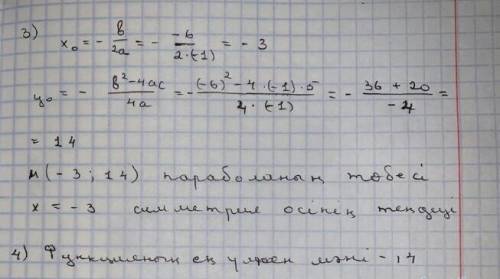 3) x₀ = - в/2a = - -6/2·(-1) = - 3
y₀ = - в²-4ac/4a = - (-6)²-4·(-1)·5/4·(-1) = - 36+20/-4 =
= 14
м(-3; 14) параболаның төбесі
x = -3 симметрия осінің теңдеуі
4) Функцияның ең үлкен мәні - 14